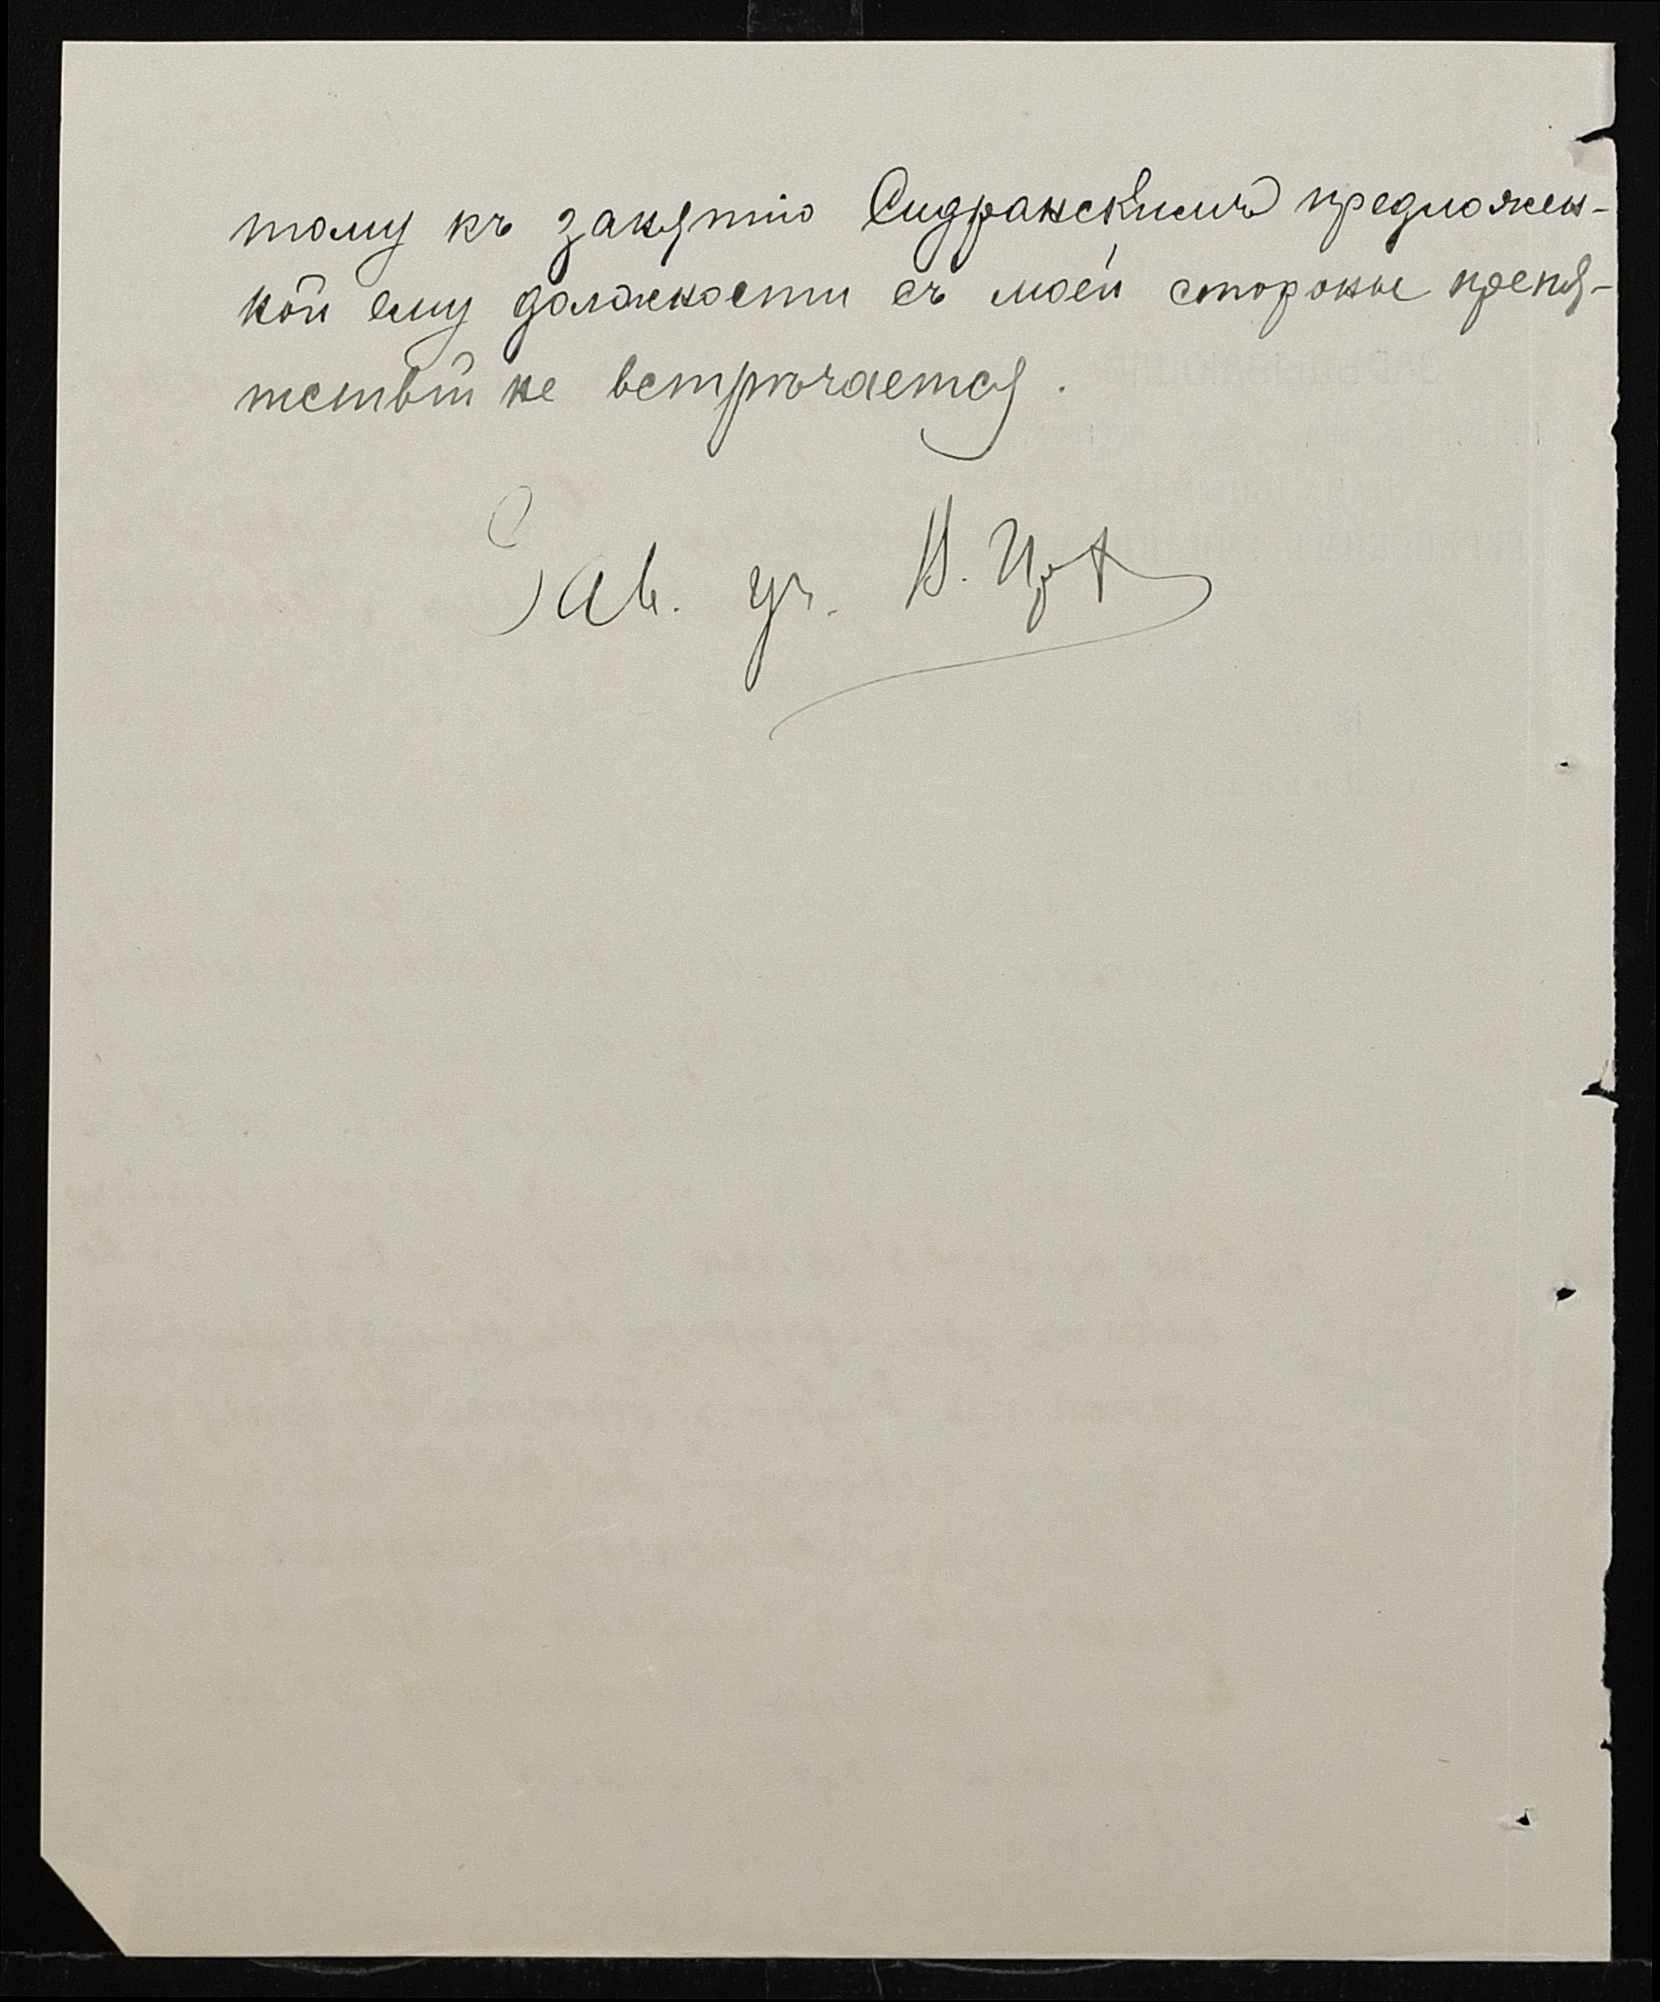 тому къ занятію Сидранскимъ предложен-
ной ему должности съ моей стороны препя-
тствій не встрѣчается.
Зав. уч.